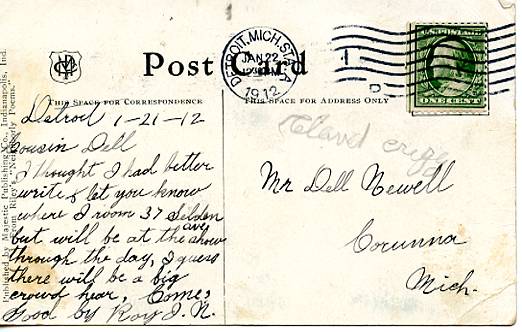 Post Card
DETROIT, MICH. STA. A
JAN 22
12 M
1912
U.S. POSTAGE
ONE CENT
THIS SPACE FOR CORRESPONDENCE
THIS SPACE FOR ADDRESS ONLY
Published by Majestic Publishing Co., Indianapolis, Ind.
From Riley's "Neighborly Poems."
Detroit 1-21-12
Cousin Dell
I thought I had better
write & let you know
where I room 37 Selden
ave
but will be at the show
through the day, I guess
there will be a big
crowd hear, Come,
Good by Roy J. N.
Mr Dell Newell
Corunna
Mich.